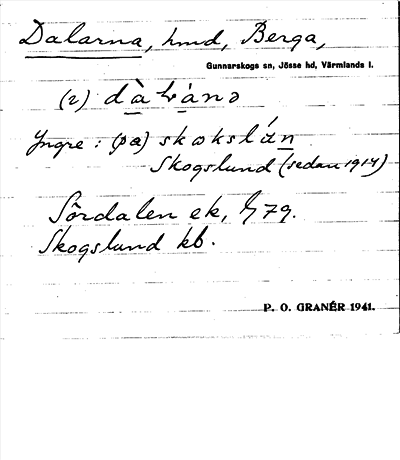 Dalarna, hmd, Berga,
Gunnarskogs sn, Jösse hd, Värmlands l.
(2) dàɫànə
Yngre: (pɑ) skoksl
Skogslund (sedan 1914)
Sördalen ek, 79.
Skogslund kb.
P. O. GRANÉR 1941.